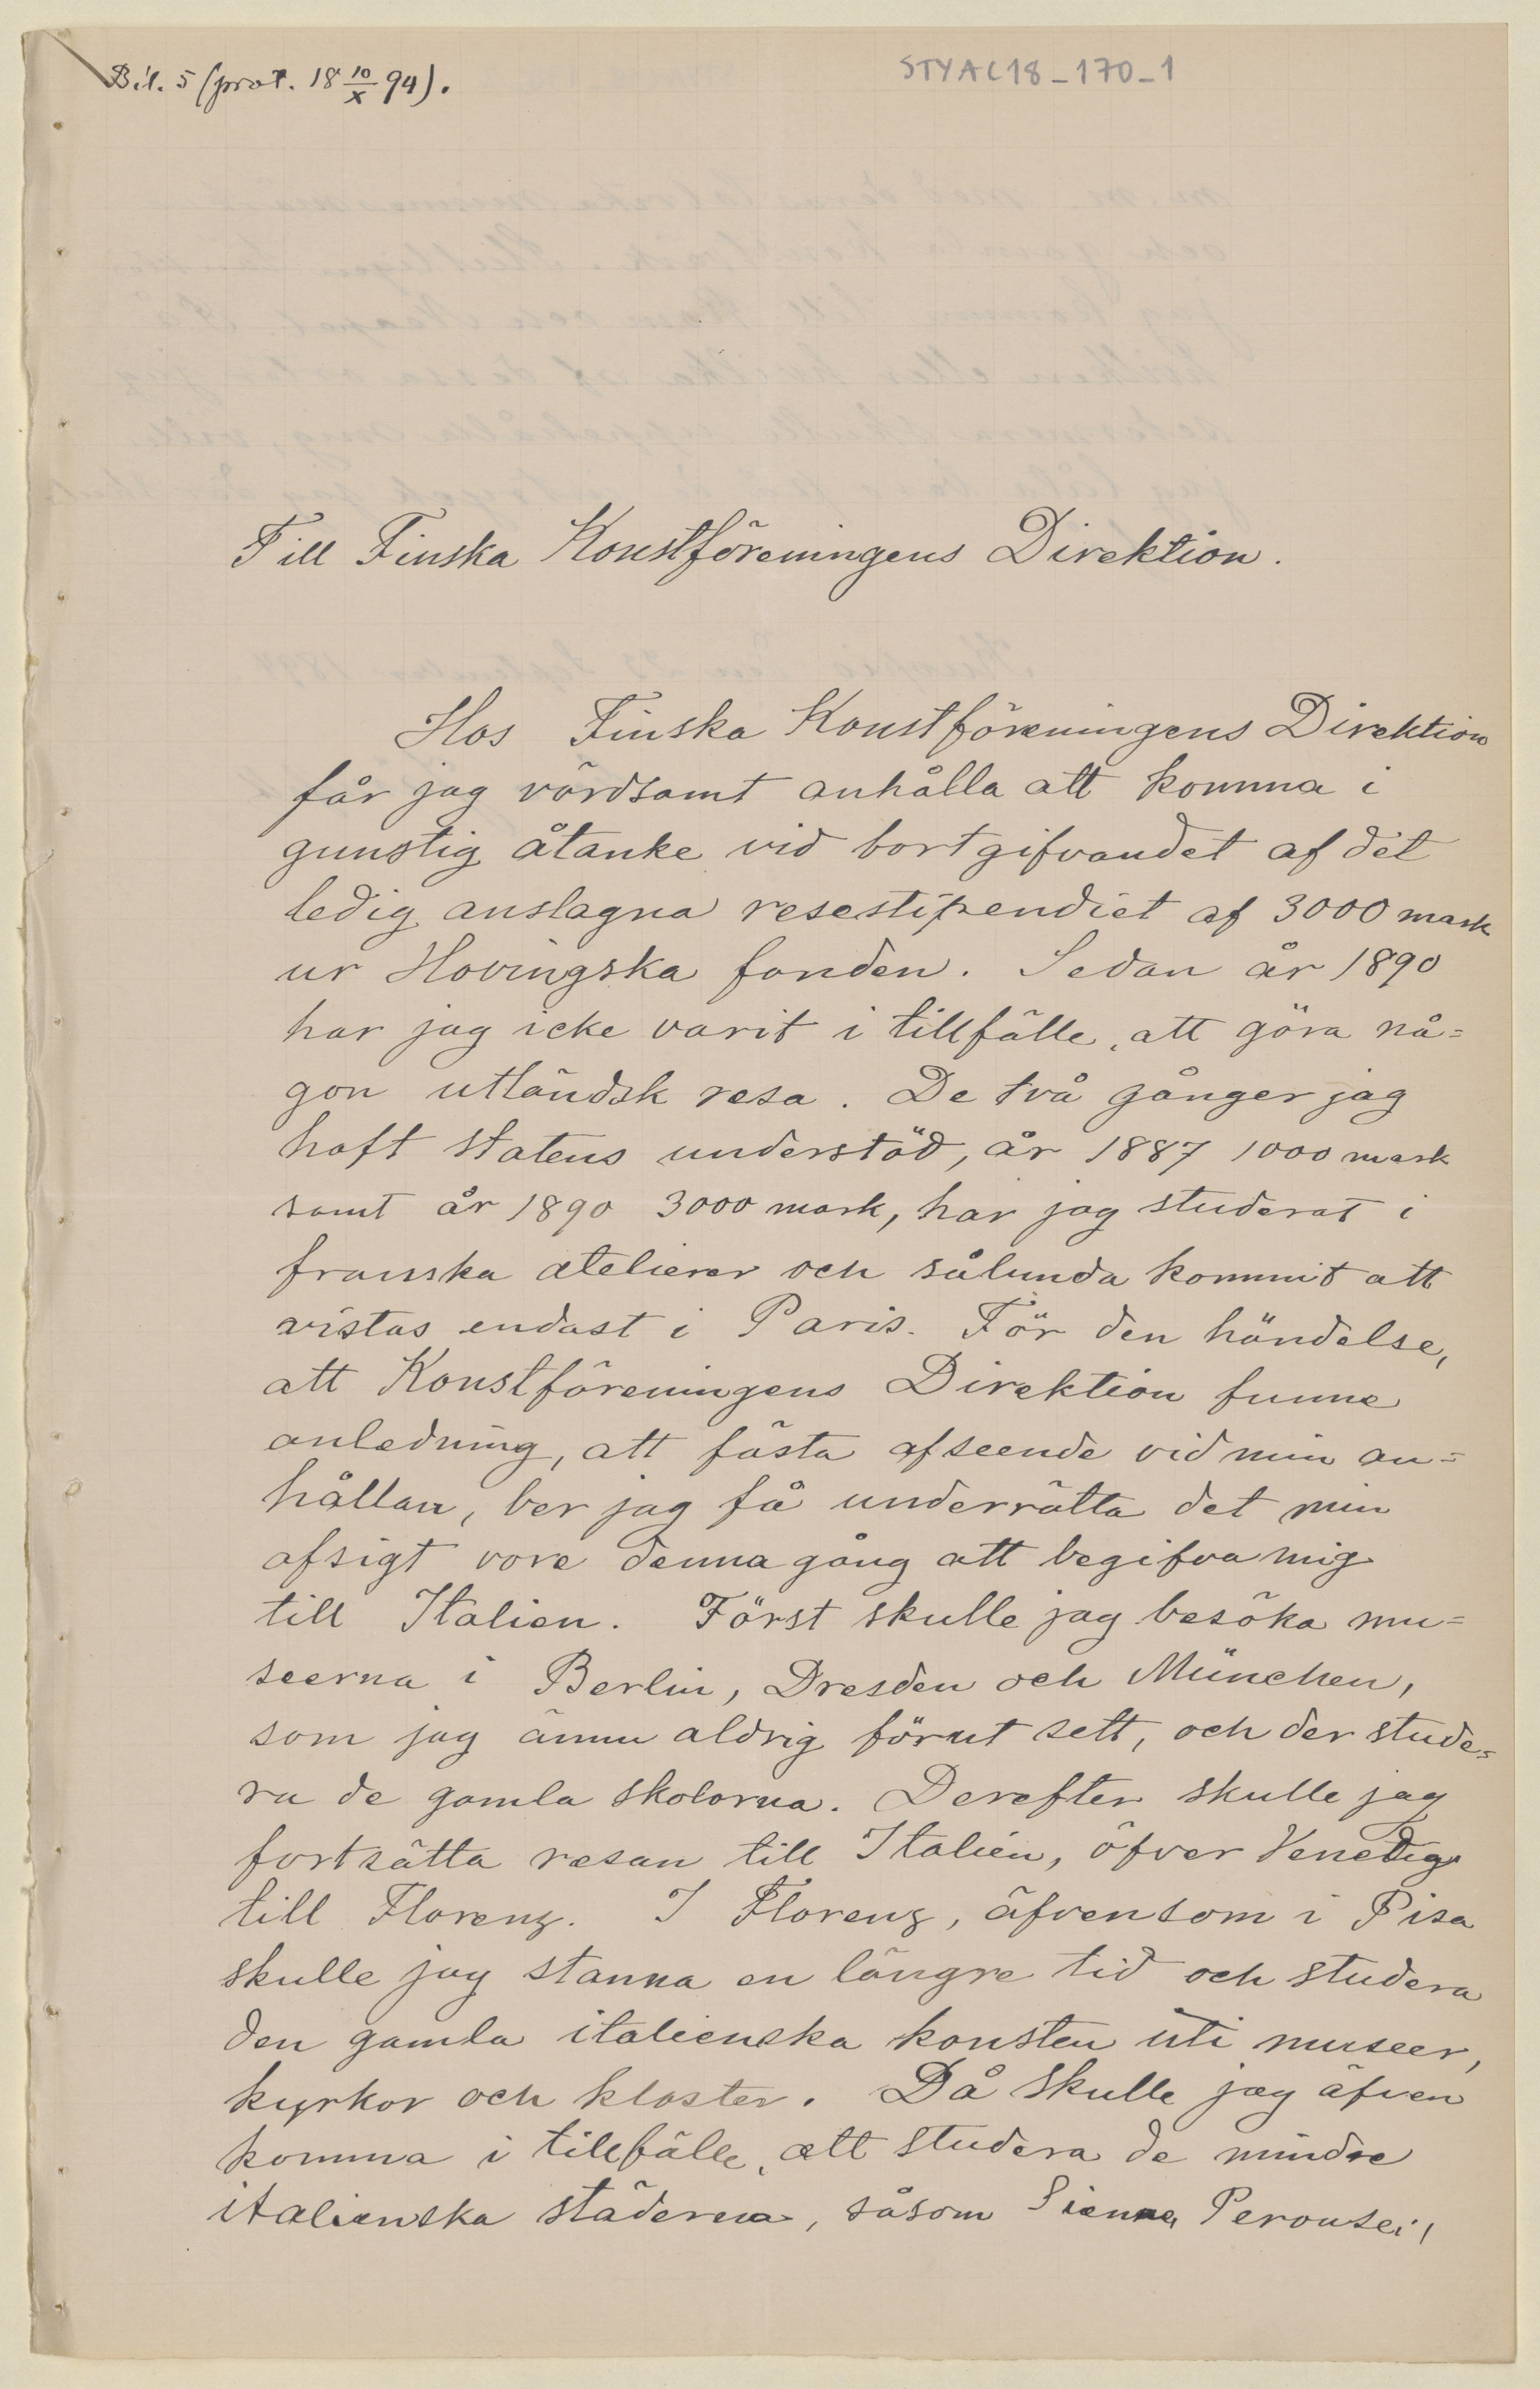 Bil. 5 (prot. 18 10/X 94).
STYAC18_170_1
Till Finska Konstföreningens Direktion.
Hos Finska Konstföreningens Direktion
får jag vördsamt anhålla att komma i
gunstig åtanke vid bortgifvandet af det
ledig anslagna resestipendiet af 3000 mark
ur Hovingska fonden. Sedan år 1890
har jag icke varit i tillfälle, att göra nå=
gon utländsk resa. De två gånger jag
haft statens understöd, år 1887 1000 mark
samt år 1890 3000 mark, har jag studerat i
franska atelierer och sålunda kommit att
vistas endast i Paris. För den händelse,
att Konstföreningens Direktion funne
anledning, att fästa afseende vid min an=
hållan, ber jag få underrätta det min
afsigt vore denna gång att begifva mig
till Italien. Först skulle jag besöka mu=
seerna i Berlin, Dresden och München,
som jag ännu aldrig förut sett, och der stude=
ra de gamla skolorna. Derefter skulle jag
fortsätta resan till Italien, öfver Venedig
till Florenz. I Florenz, äfvensom i Pisa
skulle jag stanna en längre tid och studera
den gamla italienska konsten uti museer,
kyrkor och kloster. Då skulle jag äfven
komma i tillfälle, att studera de mindre
italienska städerna, såsom Sienna, Perouse,